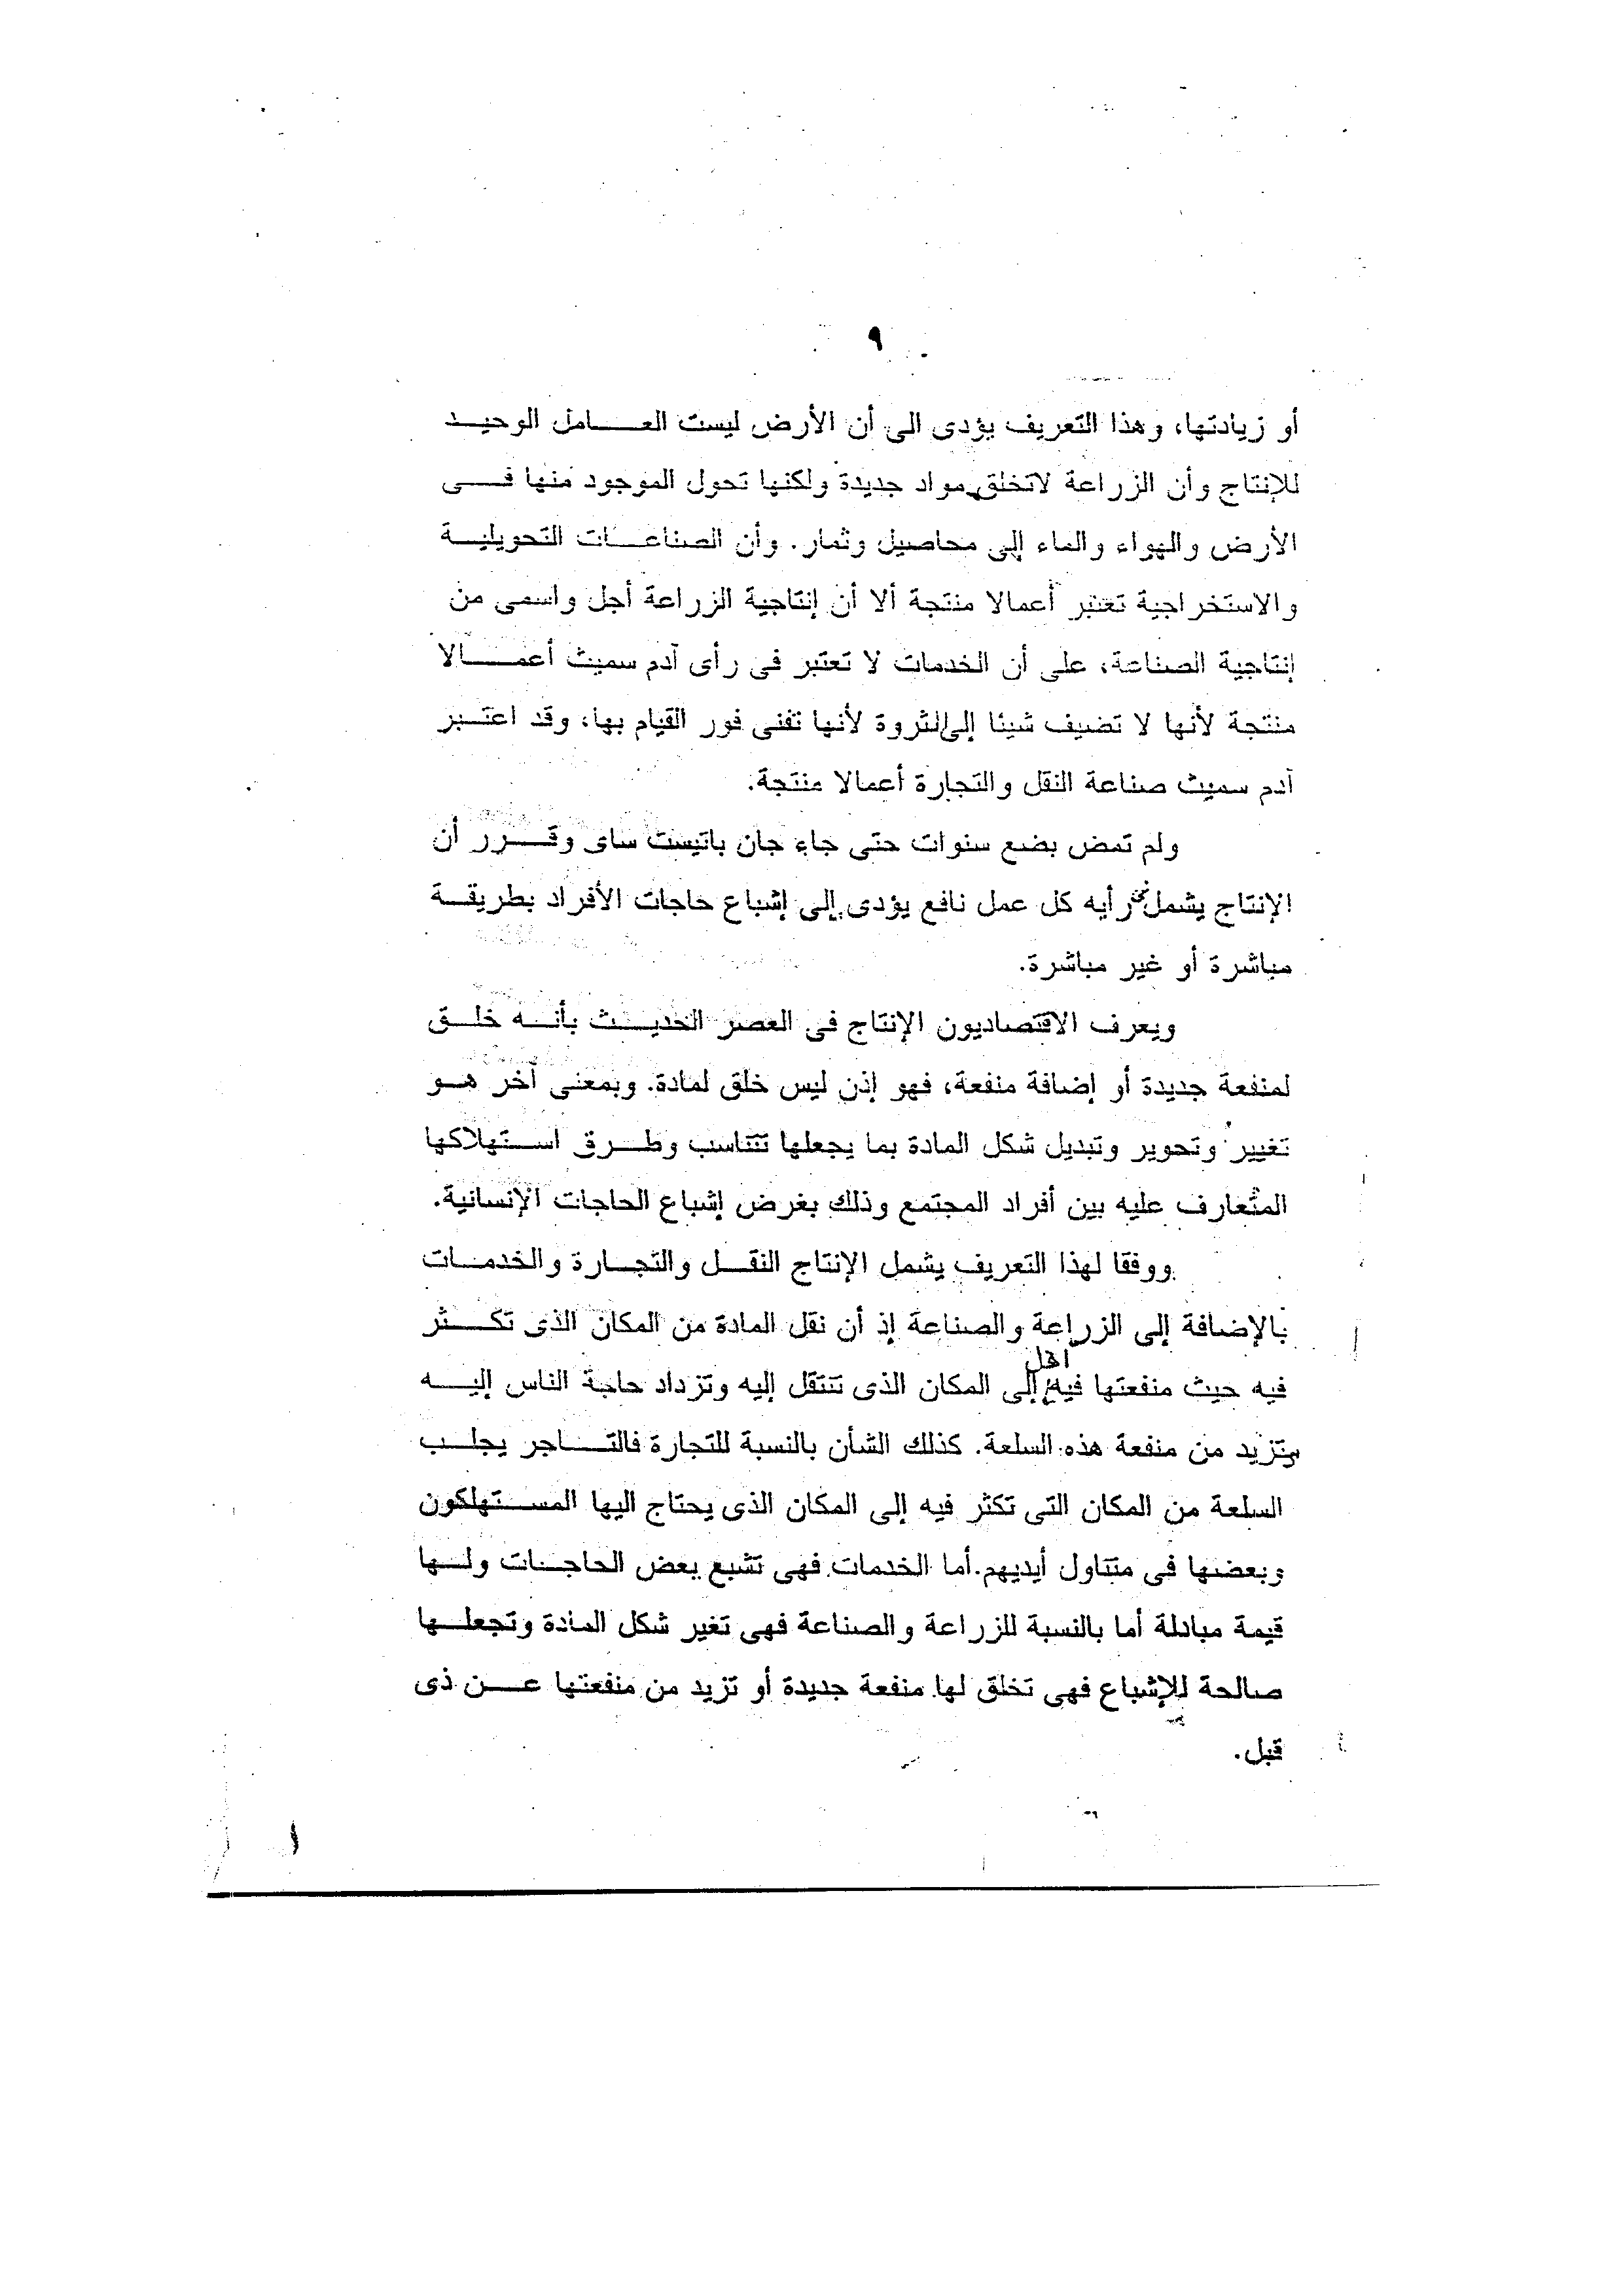 ٩
أو زيادتها، وهذا التعريف يؤدى الى أن الأرض ليست العامل الوحيد
للإنتاج وأن الزراعة لاتخلق مواد جديدة ولكنها تحول الموجود منها فى
الأرض والهواء والماء إلى محاصيل وثمار. وأن الصناعات التحويلية
والاستخراجية تعتبر أعمالا منتجة ألا أن إنتاجية الزراعة أجل واسمى من
إنتاجية الصناعة، على أن الخدمات لا تعتبر فى رأى آدم سميث أعمالا
منتجة لأنها لا تضيف شيئا إلى الثروة لأنها تفنى فور القيام بها، وقد اعتبر
آدم سميث صناعة النقل والتجارة أعمالا منتجة.
ولم تمض بضع سنوات حتى جاء جان باتيست ساى وقرر أن
الإنتاج يشمل فى رأيه كل عمل نافع يؤدى إلى إشباع حاجات الأفراد بطريقة
مباشرة أو غير مباشرة.
ويعرف الاقتصاديون الإنتاج فى العصر الحديث بأنه خلق
لمنفعة جديدة أو إضافة منفعة، فهو إذن ليس خلق لمادة. وبمعنى آخر هو
تغيير وتحوير وتبديل شكل المادة بما يجعلها تتناسب وطرق استهلاكها
المتعارف عليه بين أفراد المجتمع وذلك بغرض إشباع الحاجات الإنسانية.
ووفقا لهذا التعريف يشمل الإنتاج النقل والتجارة والخدمات
بالإضافة إلى الزراعة والصناعة إذ أن نقل المادة من المكان الذى تكثر
فيه حيث منفعتها فيه اقل إلى المكان الذى تنتقل إليه وتزداد حاجة الناس إليه
تزيد من منفعة هذه السلعة. كذلك الشأن بالنسبة للتجارة فالتاجر يجلب
السلعة من المكان التى تكثر فيه إلى المكان الذى يحتاج اليها المستهلكون
وبعضها فى متناول أيديهم. أما الخدمات فهى تشبع بعض الحاجات ولها
قيمة مبادلة أما بالنسبة للزراعة والصناعة فهى تغير شكل المادة وتجعلها
صالحة للإشباع فهى تخلق لها منفعة جديدة أو تزيد من منفعتها عن ذى
قبل.